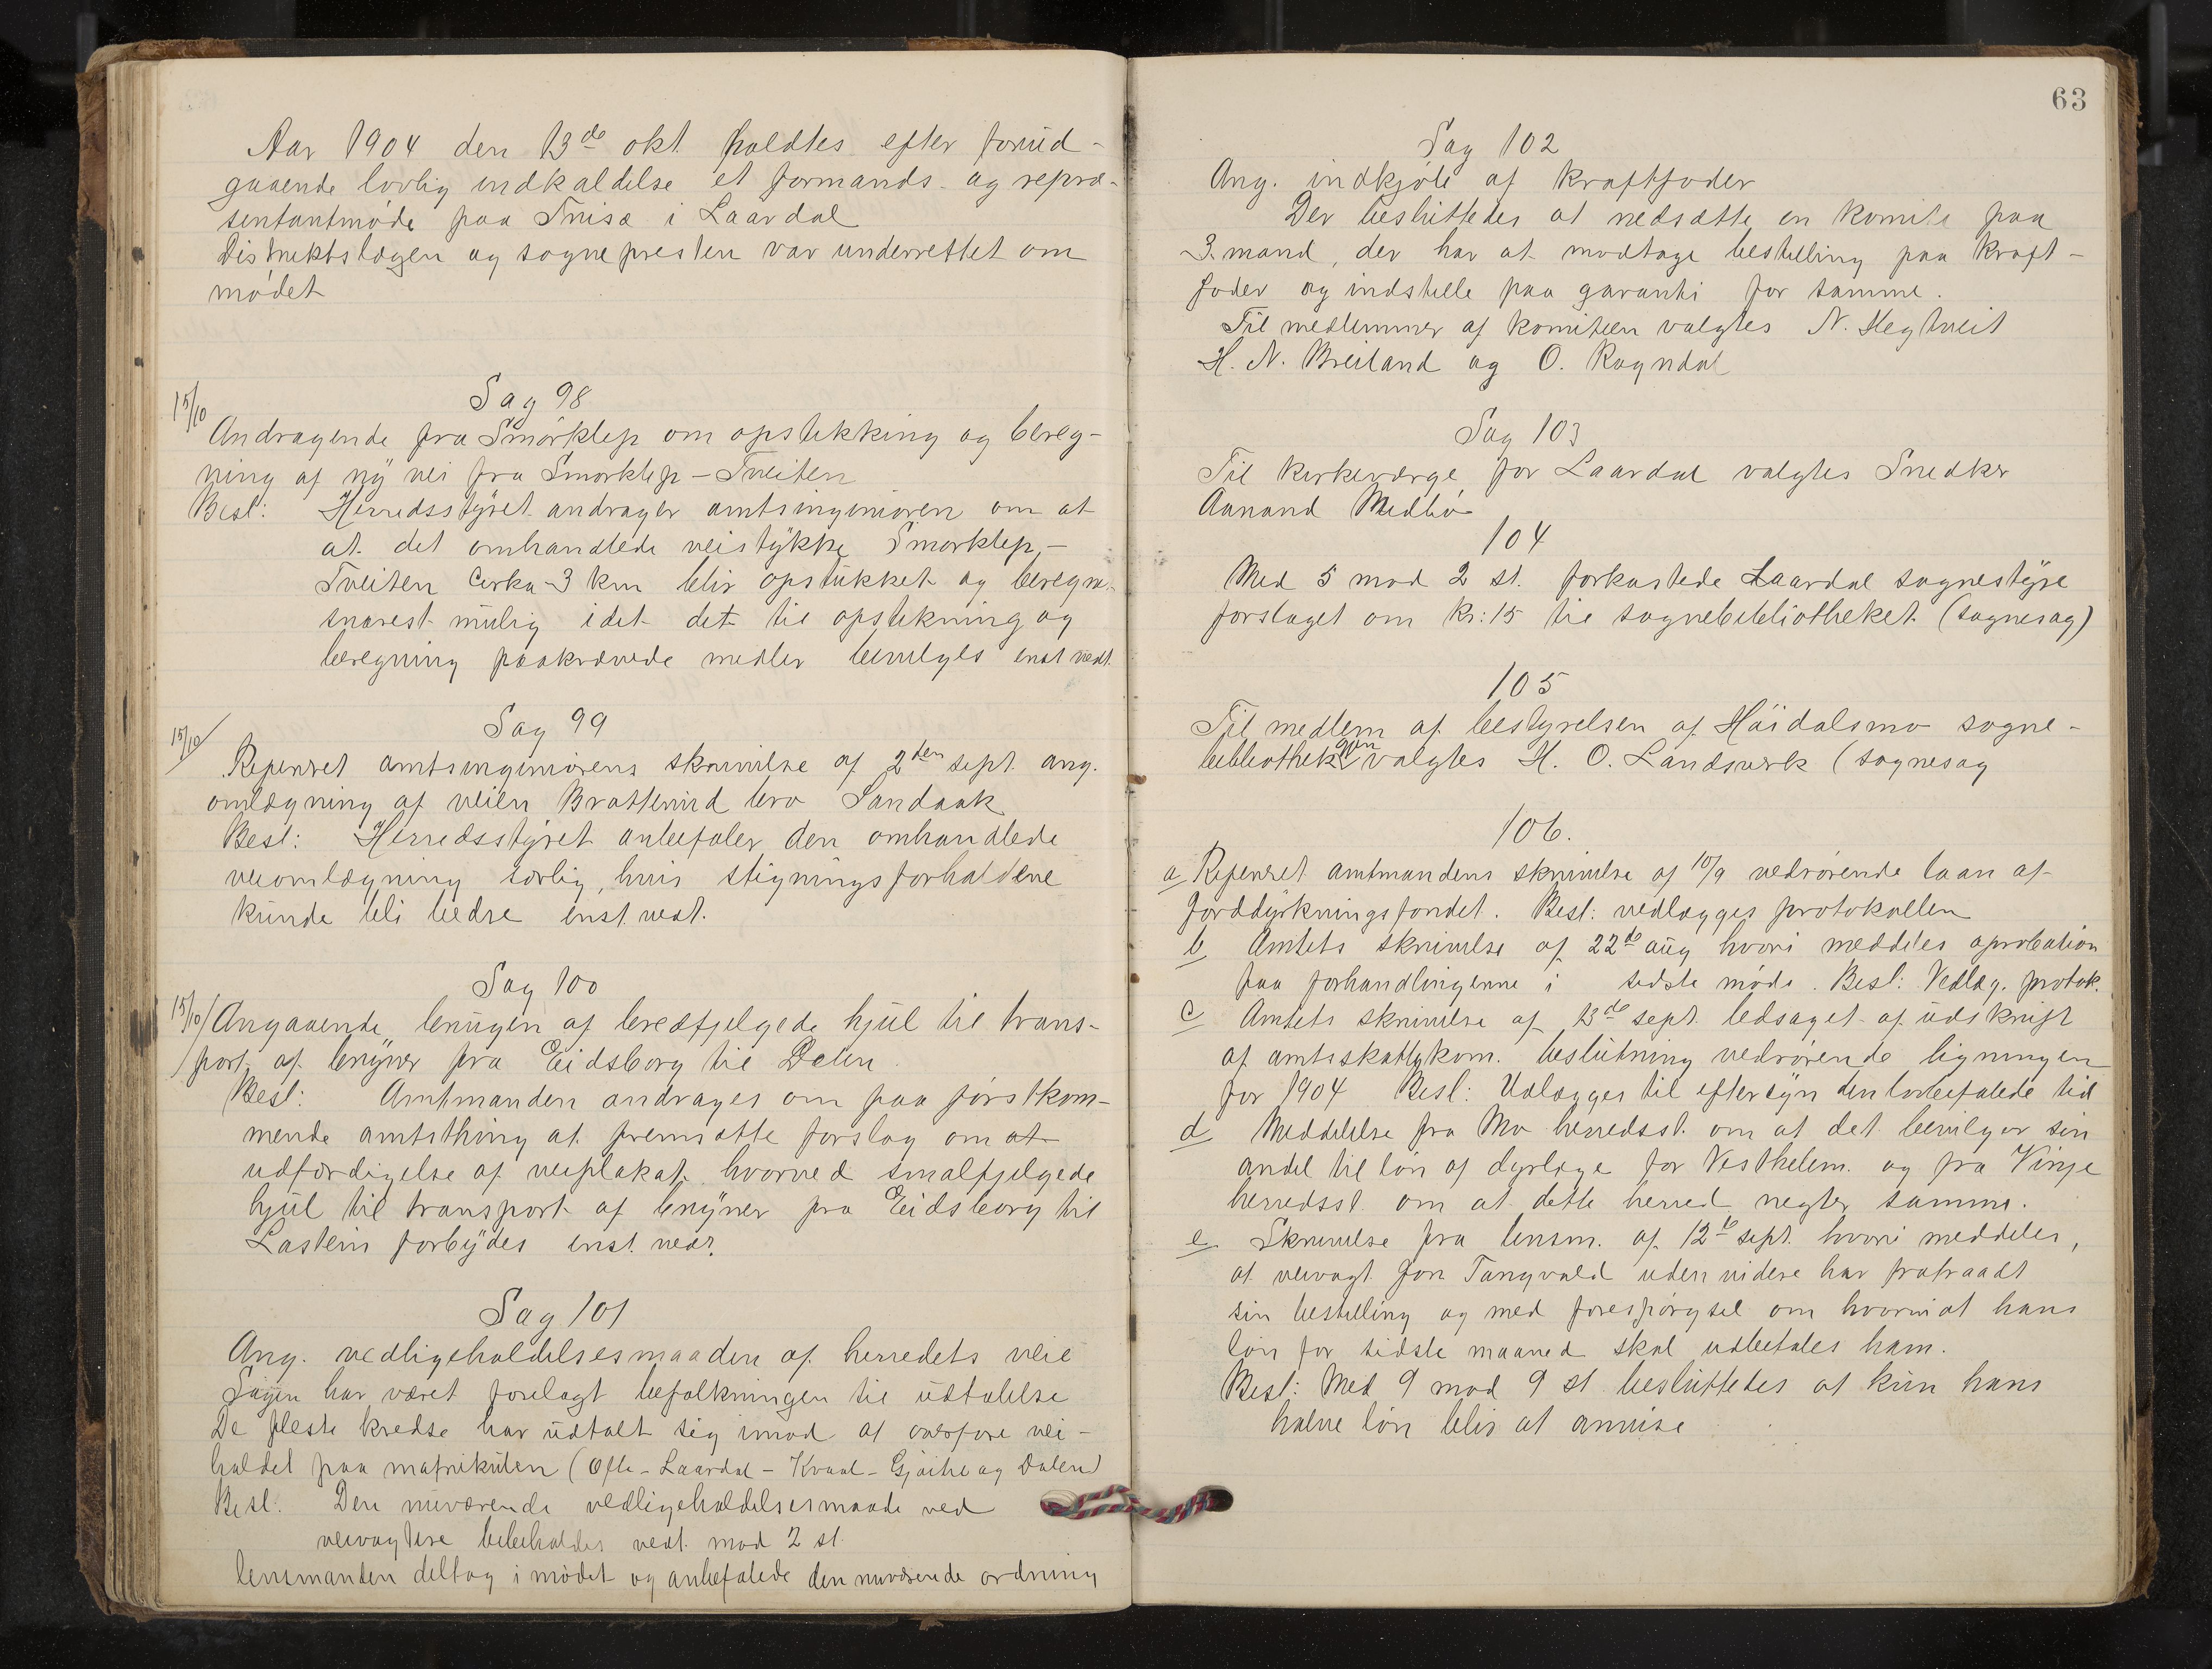 Aar 1904 den 13de okt. holdtes efter forud-
gaaende lovlig indkaldelse et formands- og repræ-
sentantmøde paa Trisæ i Laardal
Distriktslægen og sognepresten var underrettet om
mødet
15/10
Sag 98
Andragende fra Smørklep om opstikking og bereg-
ning af ny vei fra Smørklep - Tveiten
Besl: Herredsstyret andrager amtsingeniøren om at
at det omhandlede veistykke Smørklep-
Tveiten cirka 3 km blir opstukket og beregn.
snarest mulig idet det til opstikning og
beregning paakrævede midler bevilges enst vedt.
15/10
Sag 99
Referert amtsingeniørens skrivelse af 2den sept. ang.
omlægning af veien Brattevird bro Sandaak
Besl: Herredsstyret anbefaler den omhandlede
veiomlægning særlig, hvis stigningsforholdene
kunde bli bedre enst. vedt.
Sag 100
15/10 Angaaende brugen af bredfjelgede hjul til trans-
port af bryner fra Eidsborg til Dalen
Besl: Amtmanden andrages om paa førstkom-
mende amtsthing at fremsætte forslag om at
udfærdigelse af veiplakat hvorved smalfjelgede
hjul til transport af bryner fra Eidsborg til
Lastein forbydes enst. vedt.
Sag 101
Ang. vedligeholdelsesmaaden af herredets veie
Sagen har været forelagt befolkningen til udtalelse
De fleste kredse har udtalt sig imod at overføre vei-
holdet paa matrikulen (Ofte - Laardal - Kvaal - og Dalen)
Besl: Den nuværende vedligeholdelsesmaade ved
veivogtere bibeholdes vedt. mod 2 st.
lensmanden deltog i mødet og anbefalede den nuværende ordning
63
Sag 102
Ang. indkjøb af kraftfoder
Der besluttedes at nedsætte en komite paa
3 mand, der har at modtage bestilling paa kraft-
foder og indstille paa garanti for samme.
Til medlemmer af komiteen valgtes N. Hegtveit
H. N. Breiland og O. Rogndal
Sag 103
Til kirkeværge for Laardal valgtes Snedker
Aanand Midbø
104
Med 5 mod 2 st. forkastede Laardal sognestyre
forslaget om kr: 15 til sognebibliotheket. (sognesag)
105
Til medlem af bestyrelsen af Høidalsmo sogne-
bibliothek valgtes H. O. Landsverk (sognesag
106.
a Referert amtmandens skrivelse af 10/9 vedrørende laan af
Jorddyrkningsfondet. Besl: vedlægges protokollen
b Amtets skrivelse af 22de aug hvori meddeles aprobation
paa forhandlingerne i sidste møde. Besl: Vedlæg. protok.
c Amtets skrivelse af 13de sept. ledsaget af udskrift
af amtsskattekom. beslutning vedrørende ligningen
for 1904 Besl: Udlægges til eftersyn den lovbefalede tid
d Meddelelse fra Mo herredsst. om at det bevilger sin
andel til løn af dyrlæge for Vesthelem. og fra Vinje
herredsst. om at dette herred negter samme.
e Skrivelse fra lensm. af 12te sept. hvori meddeles,
at veivogt. Jon Tangvald uden videre har fratraadt
sin bestilling og med forespørgsel om hvorvidt hans
løn for sidste maaned skal udbetales ham.
Besl: Med 9 mod 9 st. besluttedes at kun hans
halve løn blir at anvise